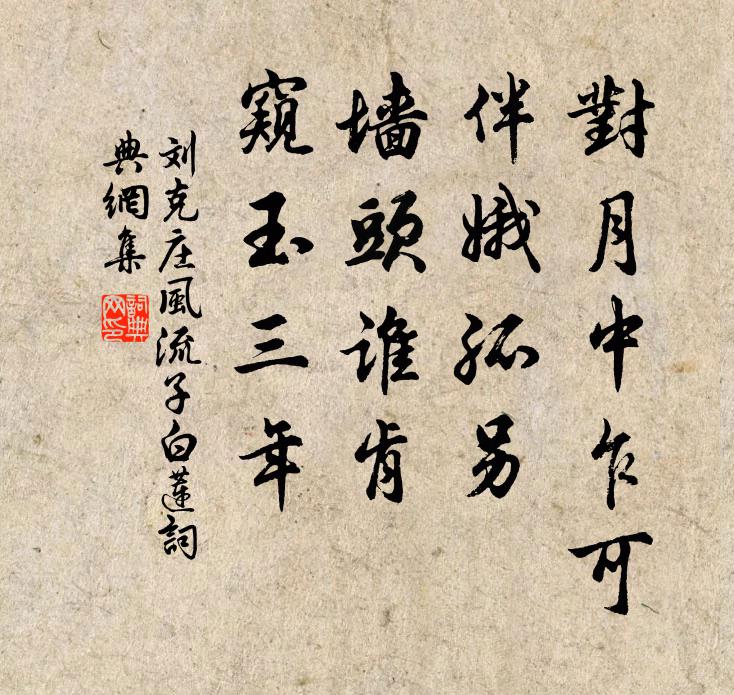 對月中乍可
伴娥孤另
墻頭誰肯
窺玉三年
刘克庄風流子白蓮詞
典網集
詞典網印